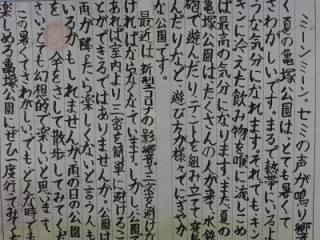 ミーンミーン。セミの声が鳴り響
く夏の亀塚公園は、とても暑くて
さわがしいです。まるで熱帯にいるよ
うな気分になれます。それでもキン
キンに冷えた飲み物を喉に流しこめ
ば最高の気分になります。また、夏の
亀塚公園はたくさんの人が来て、水鉄
砲で遊んだり、テントを組み立てて寝転
んだりなど、遊び方が様々でにぎやか
な公園です。
最近は新型コロナの影響で三密を避けな
ければならなくなっています。しかし、公園で
あれば室内より三密を簡単に避けるこ
とができるではありませんか。公園は
雨が降ったら楽しくないと言う人も
いるかもしれませんが、雨の日の公園
傘をさして散歩してみてくだ
さい。とても幻想的で楽しいと思います。
暑くてさわがしい、でもどんな時でも
楽しめる亀塚公園にぜひ一度行ってみて